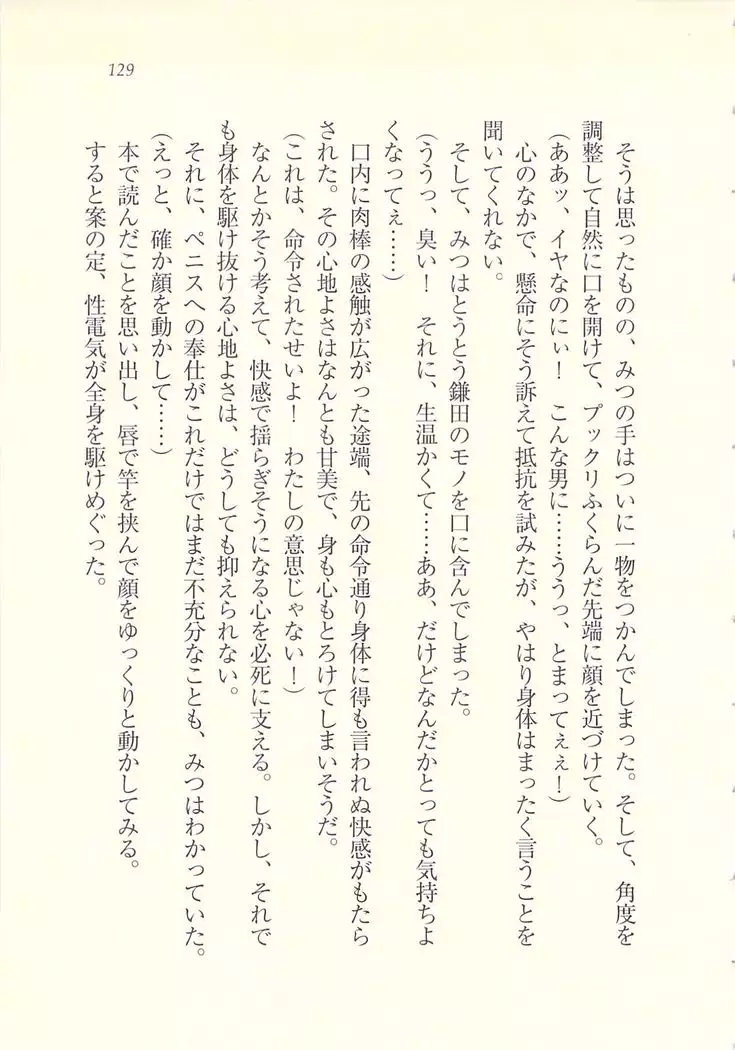 129
そうは思ったものの、みつの手はついに一物をつかんでしまった。そして、角度を
調整して自然に口を開けて、プックリふくらんだ先端に顔を近づけていく。
(ああッ、イヤなのにぃ！　こんな男に……ううっ、とまってぇぇ！)
心のなかで、懸命にそう訴えて抵抗を試みたが、やはり身体はまったく言うことを
聞いてくれない。
そして、みつはとうとう鎌田のモノを口に含んでしまった。
(ううっ、臭い！　それに、生温かくて……ああ、だけどなんだかとっても気持ちよ
くなってぇ……)
口内に肉棒の感触が広がった途端、先の命令通り身体に得も言われぬ快感がもたら
された。その心地よさはなんとも甘美で、身も心もとろけてしまいそうだ。
(これは、命令されたせいよ！　わたしの意思じゃない！)
なんとかそう考えて、快感で揺らぎそうになる心を必死に支える。しかし、それで
も身体を駆け抜ける心地よさは、どうしても抑えられない。
それに、ペニスへの奉仕がこれだけではまだ不充分なことも、みつはわかっていた。
(えっと、確か顔を動かして……)
本で読んだことを思い出し、唇で竿を挟んで顔をゆっくりと動かしてみる。
すると案の定、性電気が全身を駆けめぐった。